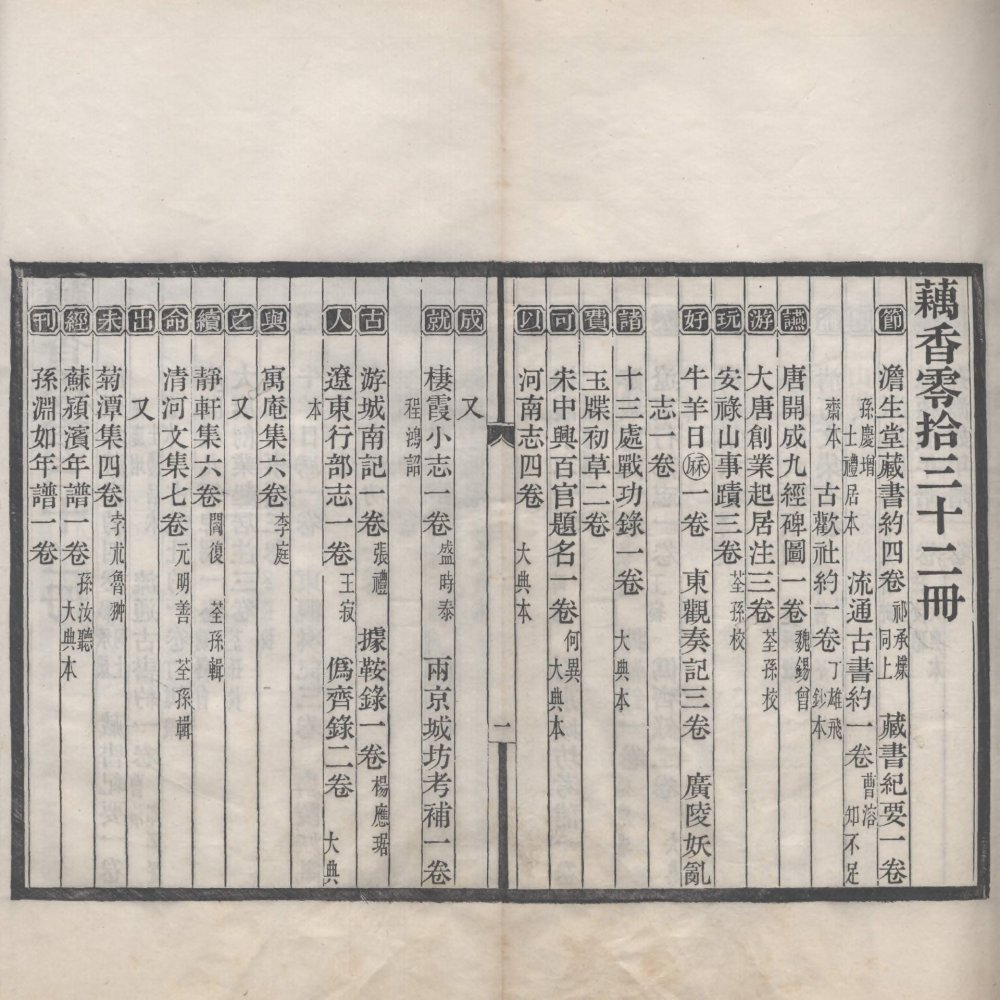 藕香零拾三十二冊
節 澹生堂藏書約四卷 祁承㸁 同上 藏書紀要一卷
孫慶增 士禮居本 流通古書約一卷 曹溶 知不足
齋本 古歡社約一卷 丁雄飛 鈔本
讌 唐開成九經碑圖一卷 魏錫曾
游 大唐創業起居注三卷 荃孫校
玩 安祿山事蹟三卷 荃孫校
好 牛羊日厤一卷 東觀奏記三卷 廣陵妖亂
志一卷
諸 十三處戰功錄一卷 大典本
費 玉牒初草二卷
可 宋中興百官題名一卷 何異 大典本
以 河南志四卷 大典本
一
成 又
就 棲霞小志一卷 盛時泰 兩京城坊考補一卷
程鴻詔
古 游城南記一卷 張禮 據鞍錄一卷 楊應琚
人 遼東行部志一卷 王寂 僞齊錄二卷 大典
本
與 寓庵集六卷 李庭
之 又
續 靜軒集六卷 閻復 荃孫輯
命 清河文集七卷 元明善 荃孫輯
出 又
未 菊潭集四卷 孛朮魯翀
經 蘇潁濱年譜一卷 孫汝聽 大典本
刊 孫淵如年譜一卷